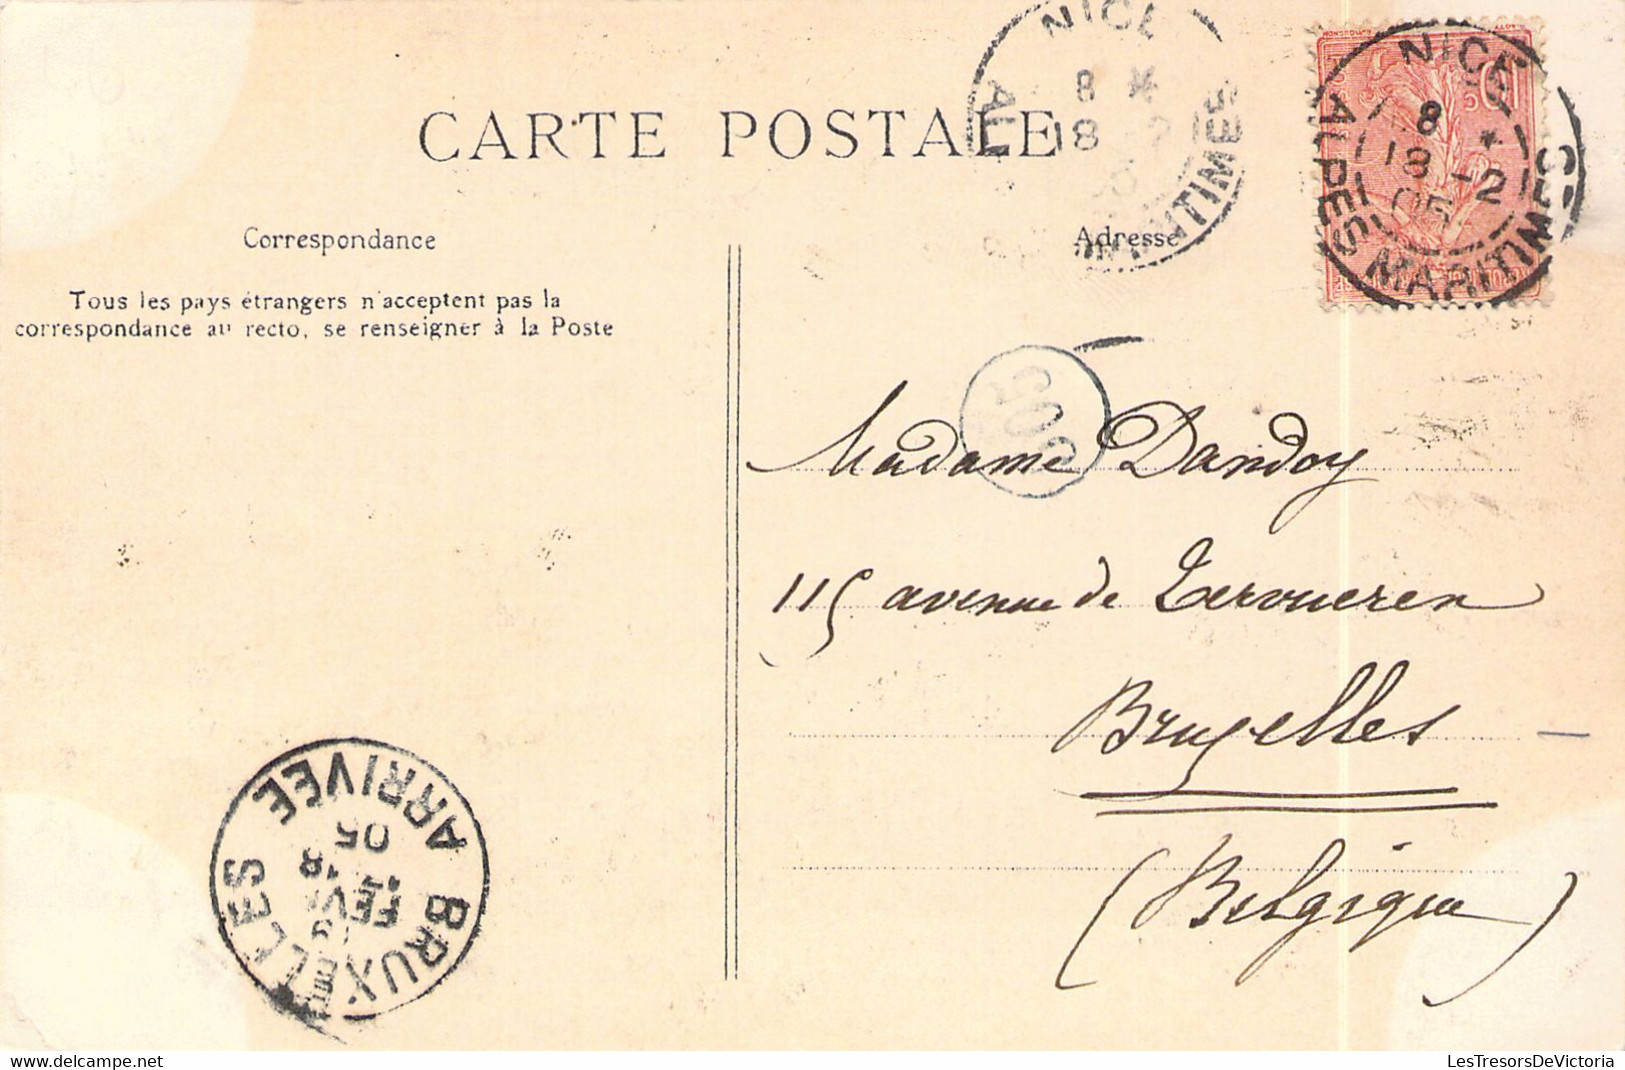 NICE
8 *
18 2
MARITIMES
NICE
8 *
18 -2
05
ALPES MARITIMES
10 c
CARTE POSTALE
Correspondance
Adresse
Tous les pays étrangers n'acceptent pas la
correspondance au recto, se renseigner à la Poste
Madame Dandoy
115 avenue de Tervueren
Bruxelles
(Belgique)
BRUXELLES ARRIVÉE
FEVR
05
LesTresorsDeVictoria